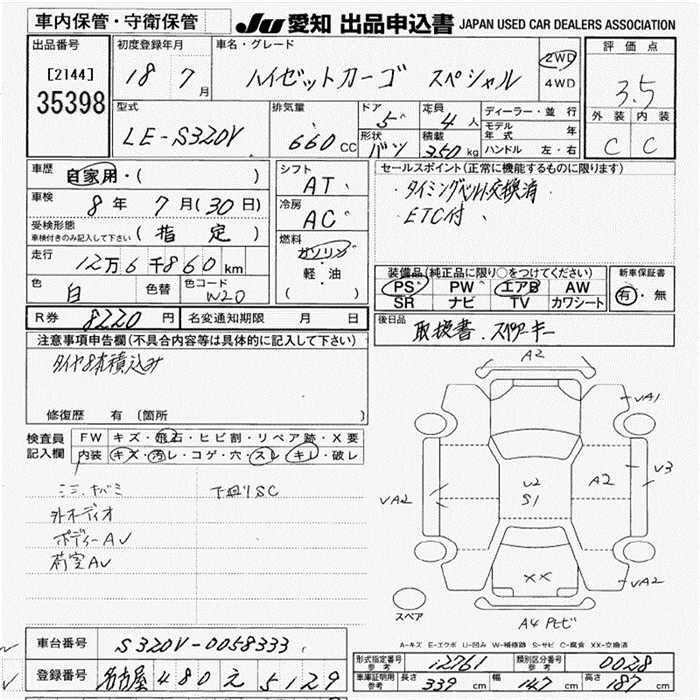 車内保管・守衛保管
JU 愛知 出品申込書 JAPAN USED CAR DEALERS ASSOCIATION
出品番号
[2144]
35398
初度登録年月
18 年 7 月
車名・グレード
ハイゼットカーゴ スペシャル
2WD
4WD
評価点
3.5
外装 内装
C C
型式
LE-S320V
排気量
660 CC
ドア
5
定員
4 人
形状
バン
積載
350 kg
ディーラー・並行
モデル年式 年
ハンドル 左・右
車歴
自家用・( )
車検
8 年 7 月(30日)
受検形態
車検付きのみ記入して下さい
(指定)
走行
12万6千860km
色
白
色替
色コード
W20
シフト
AT
冷房
AC
燃料
ガソリン
軽・油
( )
セールスポイント(正常に機能するものに限ります)
・タイミングベルト交換済
・ETC付
装備品(純正品に限り○をつけてください)
PS PW エアB AW
SR ナビ TV カワシート
新車保証書
有・無
R券 8220円 名変通知期限 月 日
後日品
取扱書.スペアーキー
注意事項申告欄(不具合内容等は具体的に記入して下さい)
タイヤ8本積込み
修復歴 有 (箇所
検査員記入欄
FW キズ・飛石・ヒビ割・リペア跡・X要
内装 キズ・汚レ・コゲ・穴・スレ・キレ・破レ
下廻りSC
外オーディオ
ボディーAU
荷室AU
A2
VA1
VA2
U2
S1
A2
V3
XX
VA2
スペア
A4
A-キズ E-エクボ U-凹み W-補修跡 S-サビ C-腐食 XX-交換済
車台番号 S320V-0058333
登録番号 名古屋 480 え 5129
形式指定番号 参考 12761 類別区分番号 参考 0028
車庫証明用 参考 長さ 339 cm 幅 147 cm 高さ 187 cm